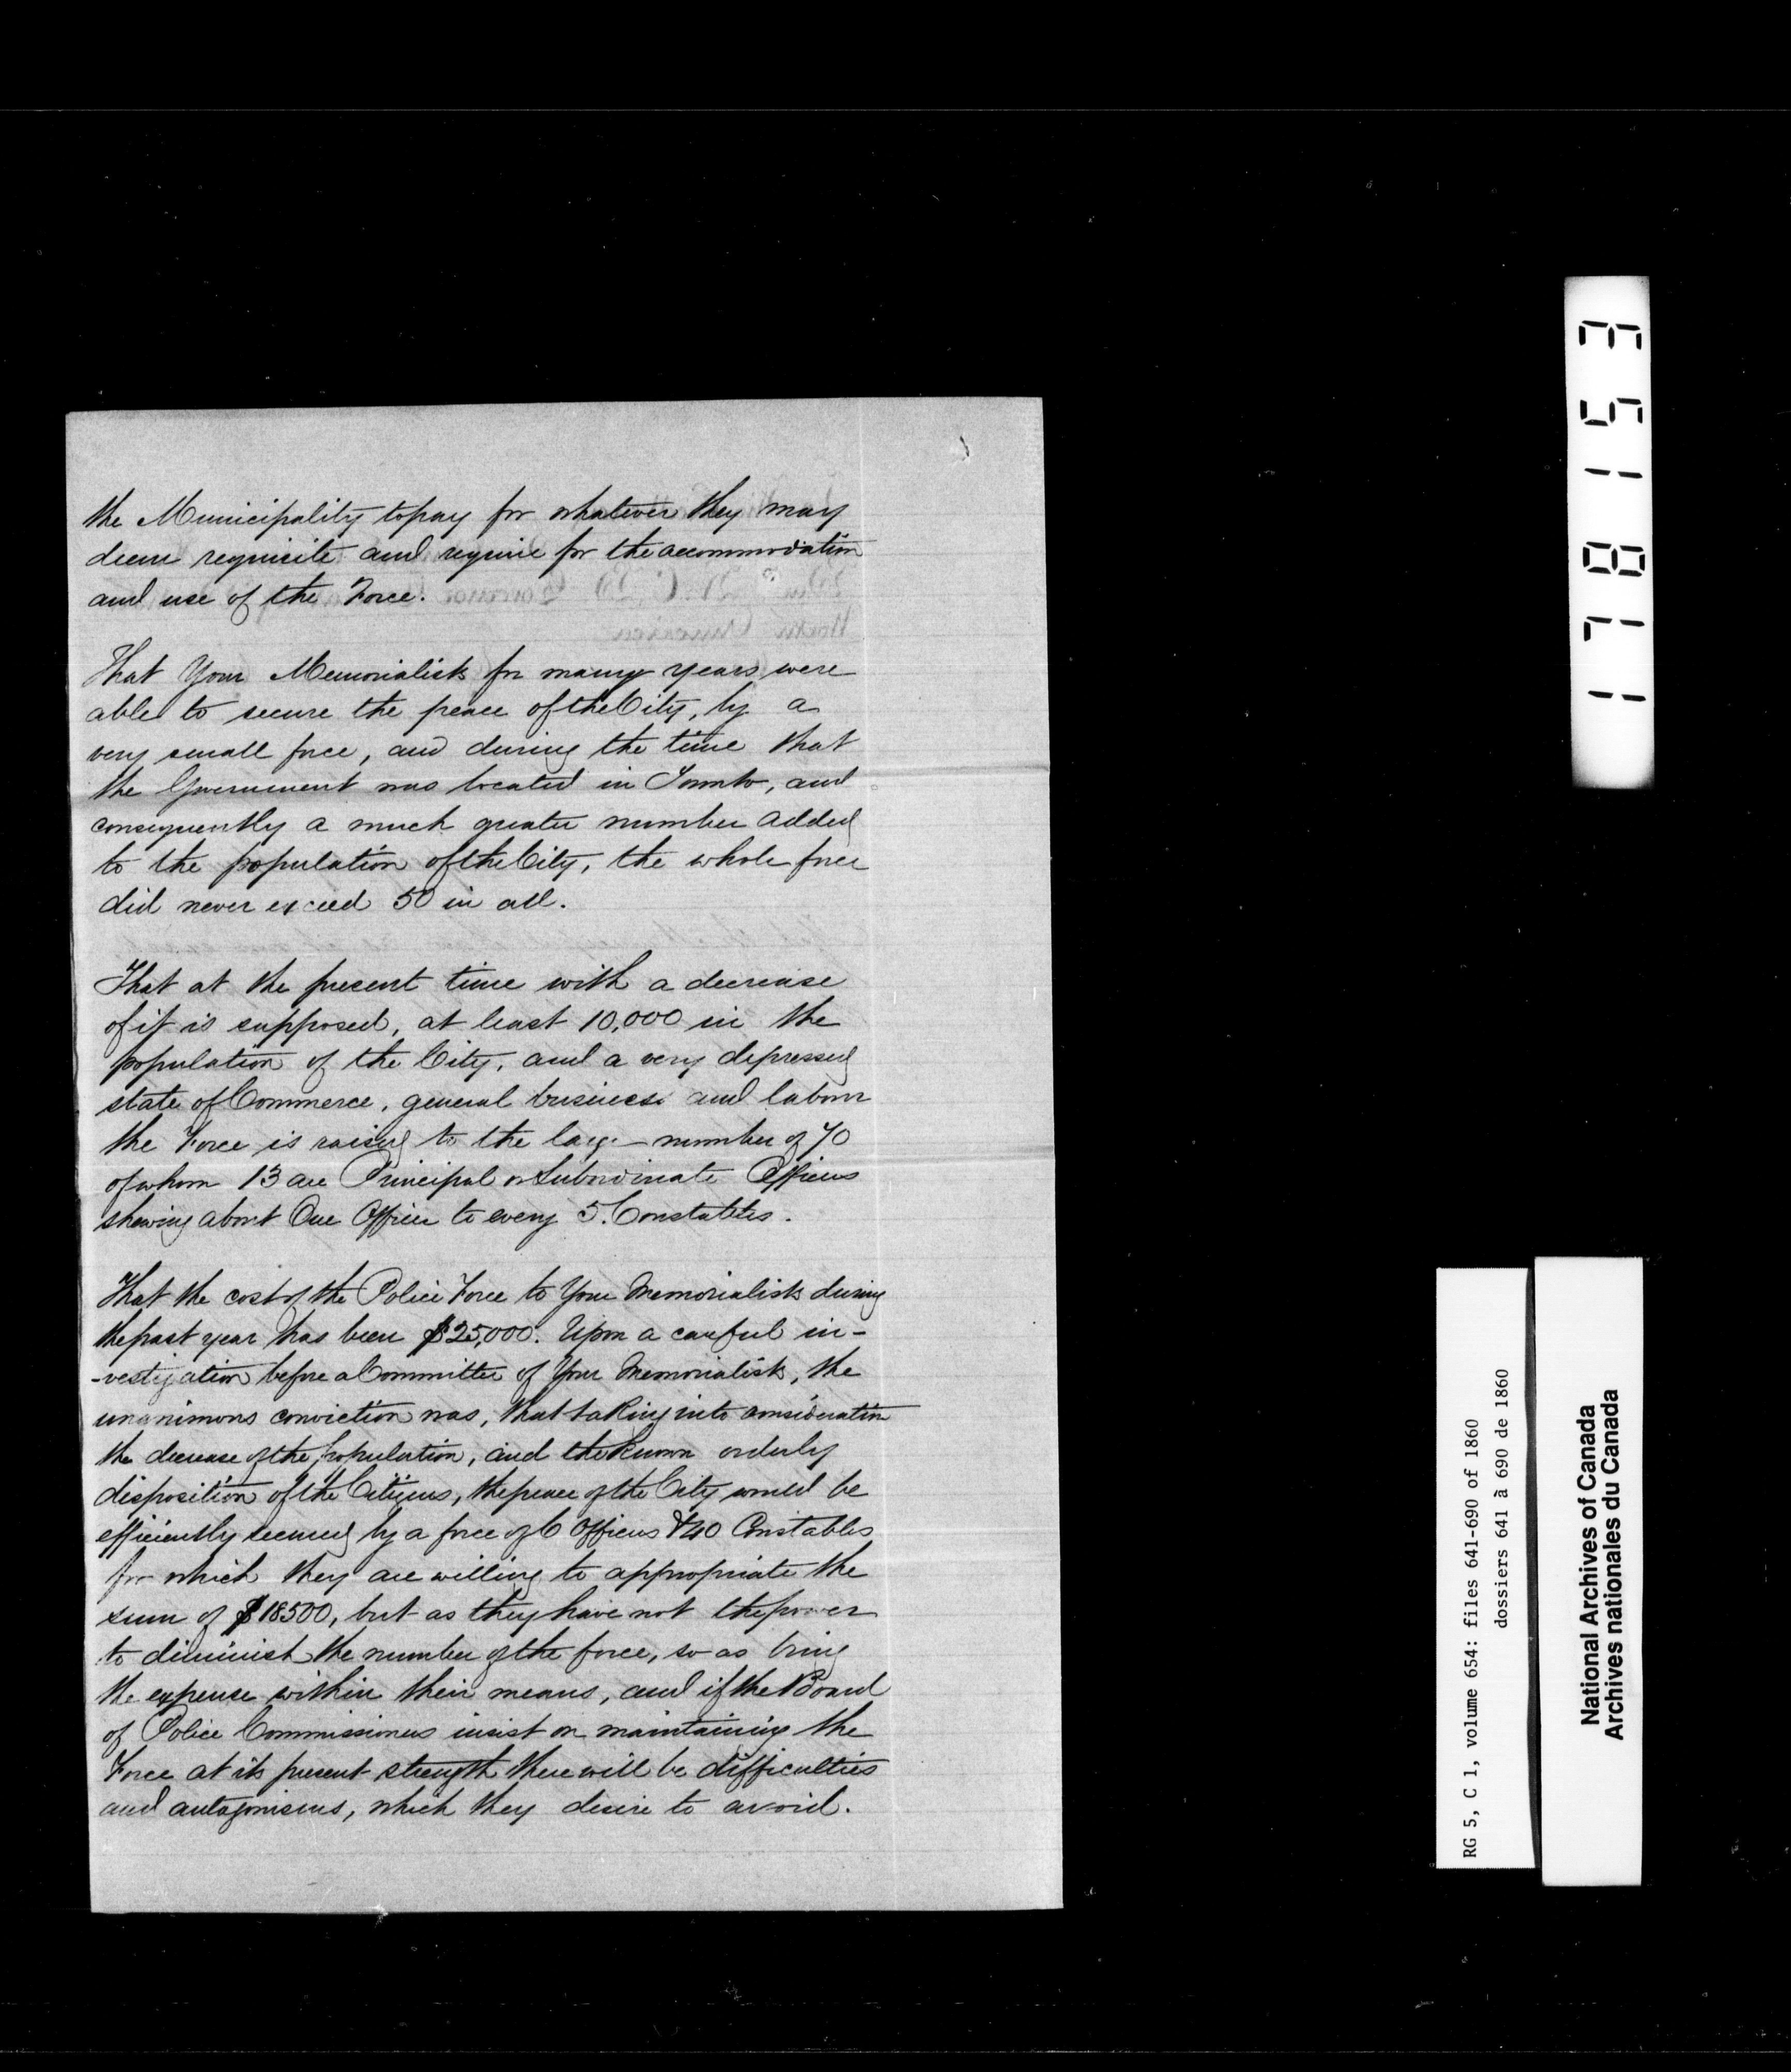 the Municipality to pay for whatever they may
deem requisite and require for the accommodation
and use of the Force.
That Your Memorialists for many years were
able to secure the peace of the City, by a
very small force, and during the time that
the Government was located in Toronto, and
consequently a much greater number added
to the population of the City, the whole force
did never exceed 50 in all.
That at the present time with a decrease
of it is supposed, at least 10,000 in the
population of the City, and a very depressed
state of Commerce, general business and labour
the Force is raised to the large number of 70
of whom 13 are Principal or Subordinate Officers
shewing about One Officer to every 5 Constables.
That the cost of the Police Force to Your Memorialists during
the past year has been $25,000. Upon a careful in-
-vestigation before a Committee of Your Memorialists, the
unanimous conviction was, that taking into consideration
the decrease of the population, and the known orderly
disposition of the Citizens, the peace of the City would be
efficiently secured by a force of 6 Officers & 40 Constables
for which they are willing to appropriate the
sum of $18500, but as they have not the power
to diminish the number of the force, so as bring
the expense within their means, and if the Board
of Police Commissioners insist on maintaining the
Force at its present strength there will be difficulties
and antagonisms, which they desire to avoid.
178153
RG 5, C 1, volume 654: files 641-690 of 1860
dossiers 641 à 690 de 1860
National Archives of Canada
Archives nationales du Canada